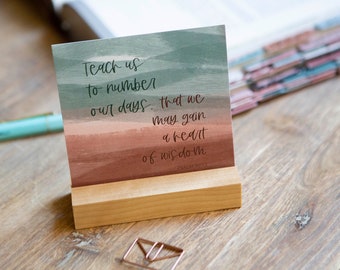 Teach us
to number
our days, that we
may gain
a heart
of wisdom